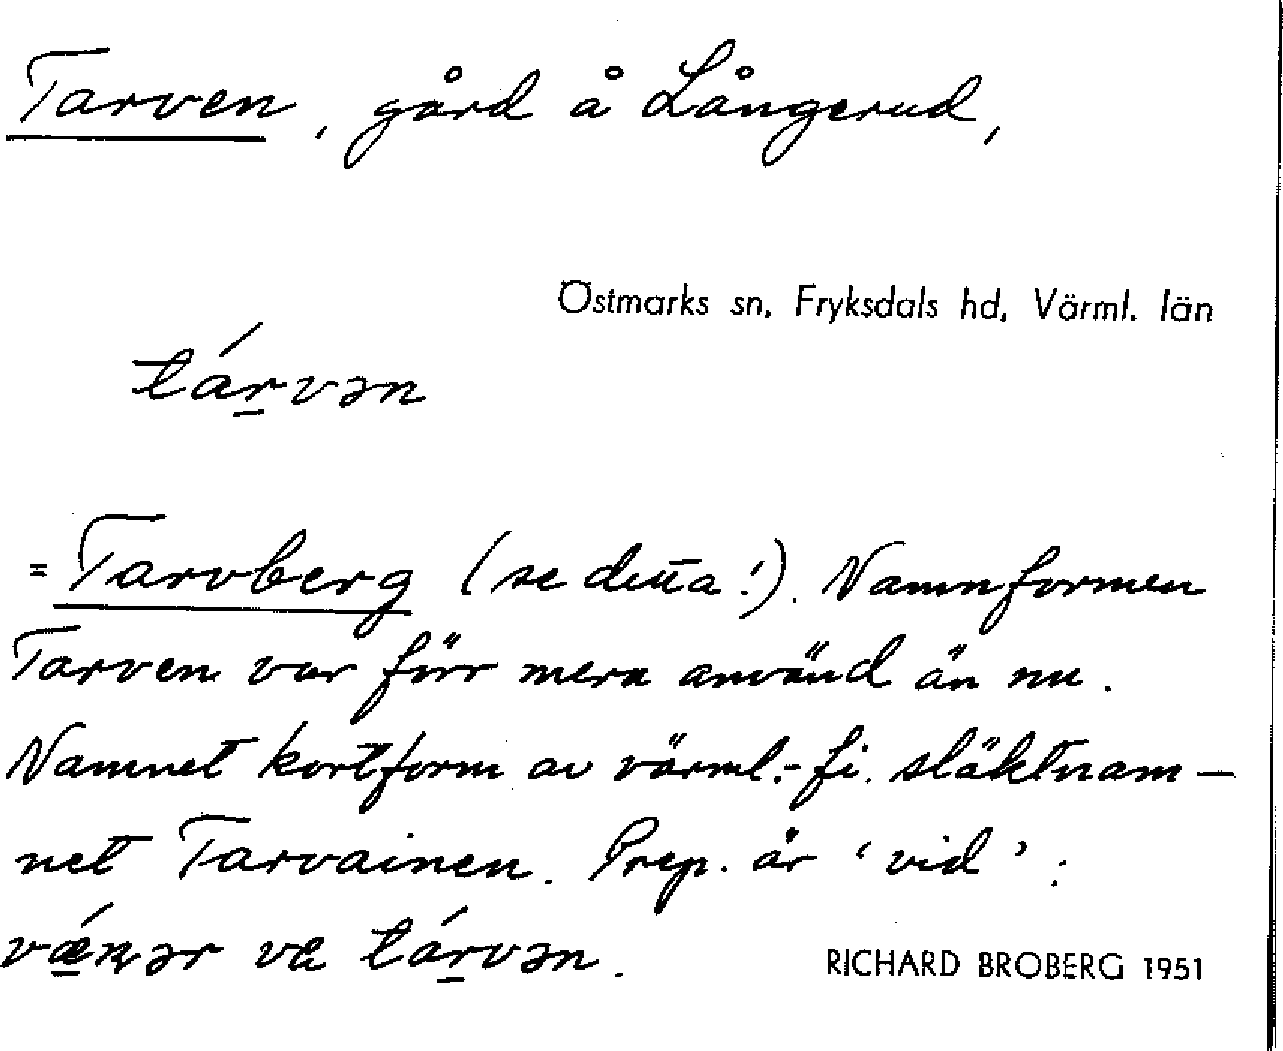 Tarven, gård å Långerud,
Östmarks sn, Fryksdals hd, Värml. län
tárvən
= Tarvberg (se detta!). Namnformen
Tarven var förr mera använd än nu.
Namnet kortform av värml.-fi. släktnam-
net Tarvainen. Prep. är 'vid':
vǽṇər va tárvən.
RICHARD BROBERG 1951